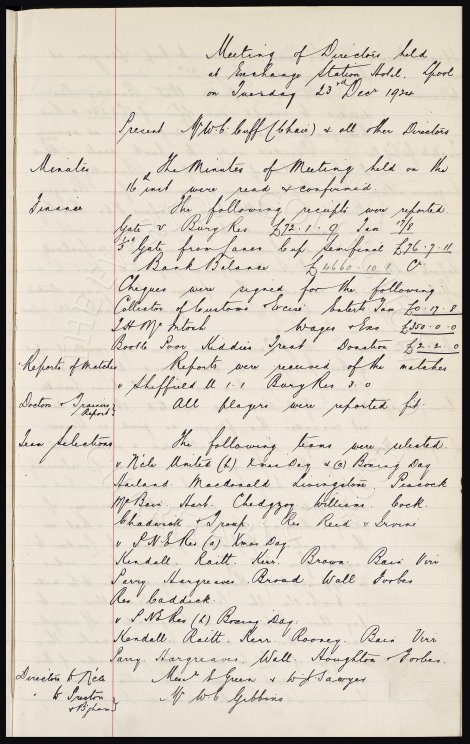 Meeting of Directors held
at Exchange Station Hotel. Lpool
on Tuesday 23rd Decr 1924
Present Mr W.C. Cuff (Chair) & all other Directors
Minutes The Minutes of Meeting held on the
16th inst were read & confirmed.
Finance The following receipts were reported
Gate v Bury Res £72.1.9 Tax 17/8
Gate from Lancs Cup semifinal £76.7.11
Bank Balance £4660.10.1 Cr
Cheques were signed for the following
Collector of Customs & Excise Enterts Tax £0.17.8
T.H. McIntosh Wages & Exs £350.0.0
Bootle Poor Kiddies Treat Donation £2.2.0
Reports of Matches Reports were received of the matches
v Sheffield U 1.1 Bury Res 3.0
Doctors & Trainers Report All players were reported fit.
Team Selections The following teams were selected
v N'cle United (h) Xmas Day & (a) Boxing Day
Harland Macdonald Livingstone Peacock
McBain Hart. Chedgzoy Williams Cock.
Chadwick & Troup. Res Reid v Irvine
v P.N.E Res (a) Xmas Day
Kendall Raitt. Kerr. Brown. Bain Virr
Parry Hargreaves Broad Wall Forbes
Res Caddick.
v P.N.E Res (h) Boxing Day.
Kendall Raitt. Kerr. Rooney. Bain Virr
Parry. Hargreaves. Wall Houghton & Forbes.
Directors to N'cle Messrs A Green & W J Sawyer
" to Preston Mr W C Gibbins